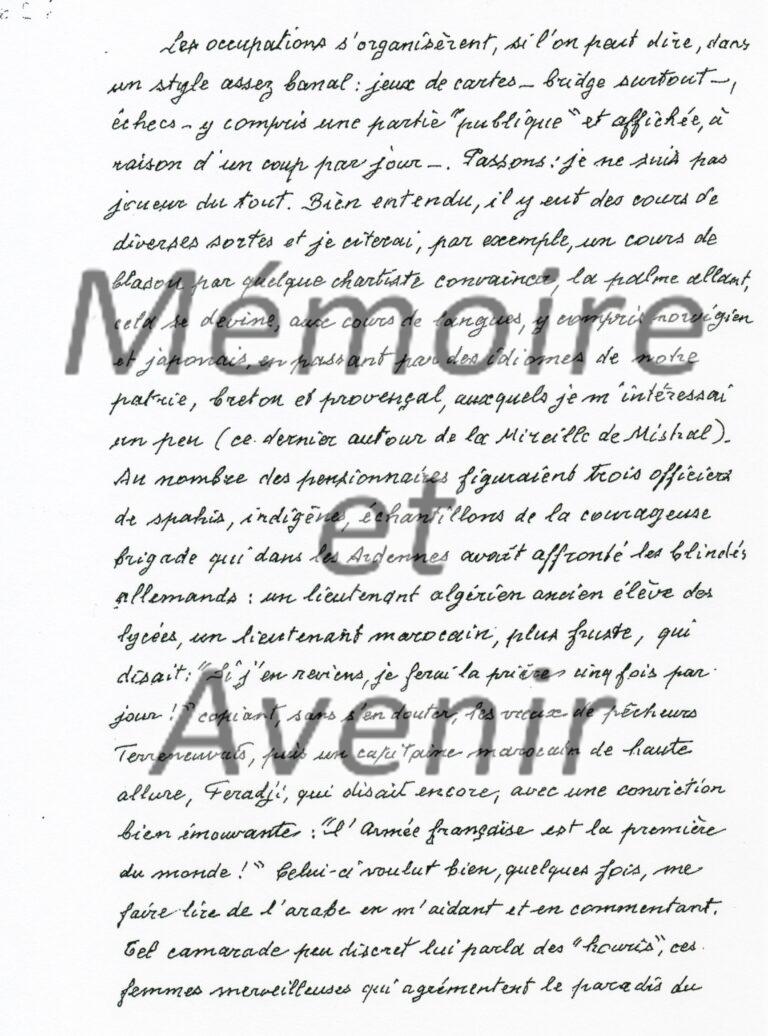 Les occupations s'organisèrent, si l'on peut dire, dans
un style assez banal : jeux de cartes - bridge surtout -,
échecs - y compris une partie "publique" et affichée, à
raison d'un coup par jour -. Passons : je ne suis pas
joueur du tout. Bien entendu, il y eut des cours de
diverses sortes et je citerai, par exemple, un cours de
blason par quelque chartiste convaincu, la palme allant,
cela se devine, aux cours de langues, y compris norvégien
et japonais, en passant par des idiomes de notre
patrie, breton et provençal, auxquels je m'intéressai
un peu (ce dernier autour de la Mireille de Mistral).
Au nombre des pensionnaires figuraient trois officiers
de spahis, indigènes, échantillons de la courageuse
brigade qui dans les Ardennes avait affronté les blindés
allemands : un lieutenant algérien ancien élève des
lycées, un lieutenant marocain, plus fruste, qui
disait : "Si j'en reviens, je ferai la prière cinq fois par
jour !" copiant, sans s'en douter, les vœux de pêcheurs
Terreneuvats, puis un capitaine marocain de haute
allure, Feradji, qui disait encore, avec une conviction
bien émouvante : "l'Armée française est la première
du monde !" Celui-ci voulut bien, quelques fois, me
faire lire de l'arabe en m'aidant et en commentant.
Tel camarade peu discret lui parla des "houris", ces
femmes merveilleuses qui agrémentent le paradis du
Mémoire
et
Avenir